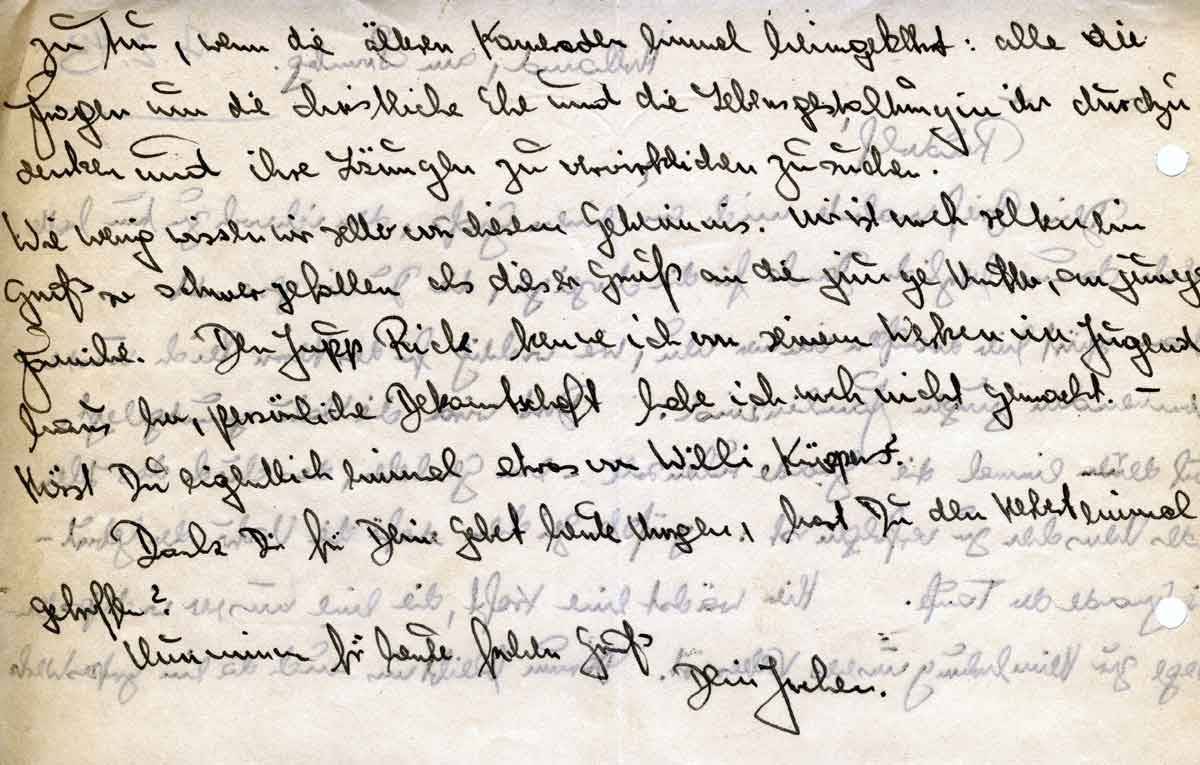 zu tun, wenn die älteren Kameraden einmal heimgekehrt: alle die
Fragen um die christliche Ehe und die Lebensgestaltung in ihr durchzu
denken und ihre Lösungen zu verwirklichen zu suchen.
Wie wenig wissen wir selber von diesem Geheimnis. Mir ist noch selten ein
Gruß so schwer gefallen als dieser Gruß an die junge Mutter, an junge
Familie. Den Jupp Rick kenne ich von seinem Werken im Jugend
haus her, persönliche Bekanntschaft habe ich noch nicht gemacht. –
Hörst Du eigentlich einmal etwas von Willi Küppers?
Dank Dir für Dein Gebet heute Morgen, hast Du den einmal
getroffen?
Nun nimm für heute frohen Gruß
Dein Jochen.